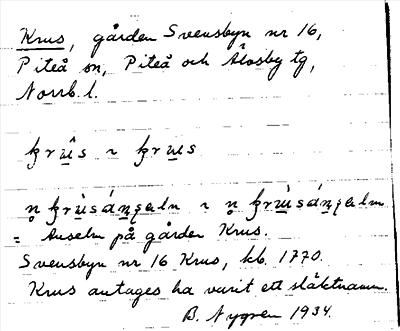 Krus, gården Svensbyn nr 16,
Piteå sn, Piteå och Älvsby tg,
Norrb. l.
krû̱s ~ kru̱s
n̥ krù̱sánsəln ~ n̥ krù̱sánsəlm
= Anselm på gården Krus.
Svensbyn nr 16 Krus, kb. 1770.
Krus antages ha varit ett släktnamn.
B. Nygren 1934.